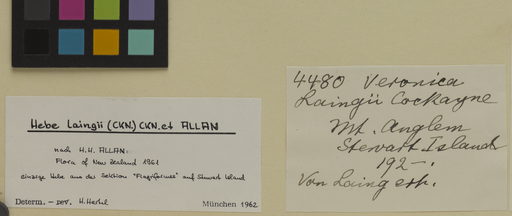 Hebe Laingii (CKN.) CKN. et ALLAN
nach H.H. ALLAN:
Flora of New Zealand 1961
einzige Hebe aus der Sektion "Flagriformes" auf Stewart Island
Determ. – rev. H. Hertel
München 1962
4480 Veronica
Laingii Cockayne
Mt. Anglem
Stewart Island
192–.
Von Laing